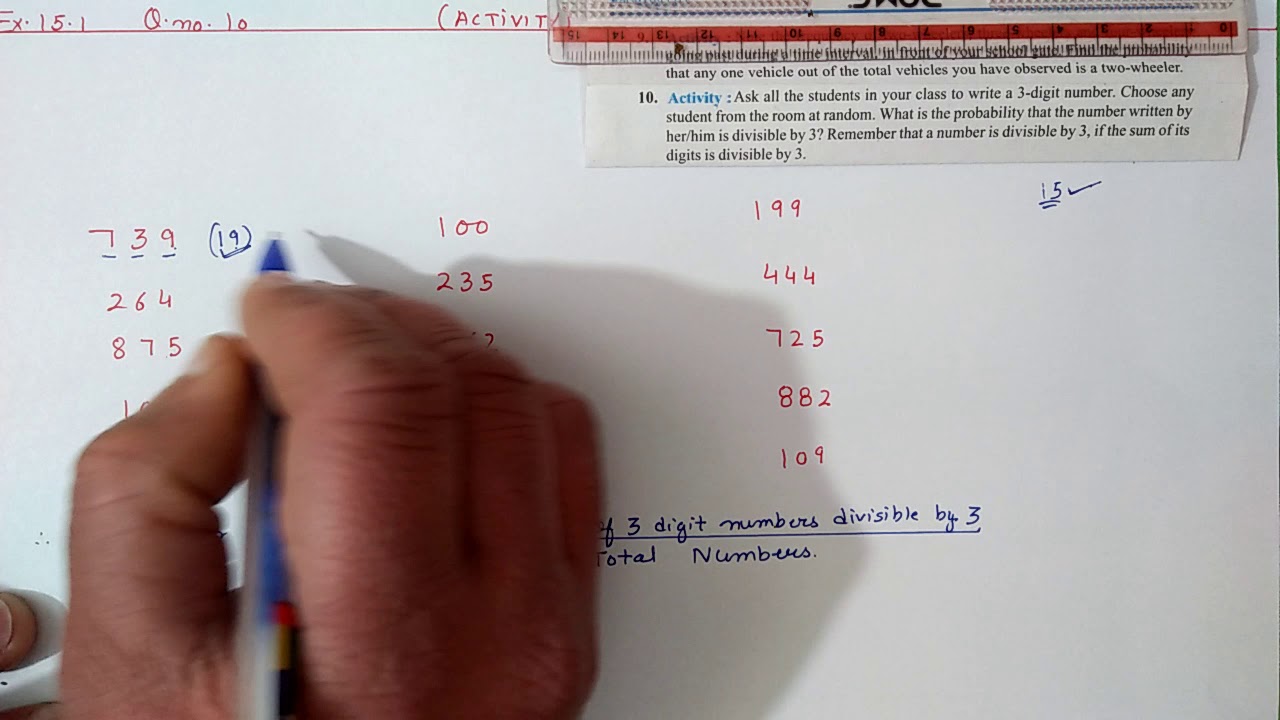 Ex. 15.1 Q. no. 10 (ACTIVITY)
15 14 13 12 11 10 9 8 7 6 5 4 3 2 1 0
going past during a time interval, in front of your school gate. Find the probability
that any one vehicle out of the total vehicles you have observed is a two-wheeler.
10. Activity : Ask all the students in your class to write a 3-digit number. Choose any
student from the room at random. What is the probability that the number written by
her/him is divisible by 3? Remember that a number is divisible by 3, if the sum of its
digits is divisible by 3.
15 ✓
739 (19) 100 199
264 235 444
875 2 725
882
109
∴ of 3 digit numbers divisible by 3
Total Numbers.